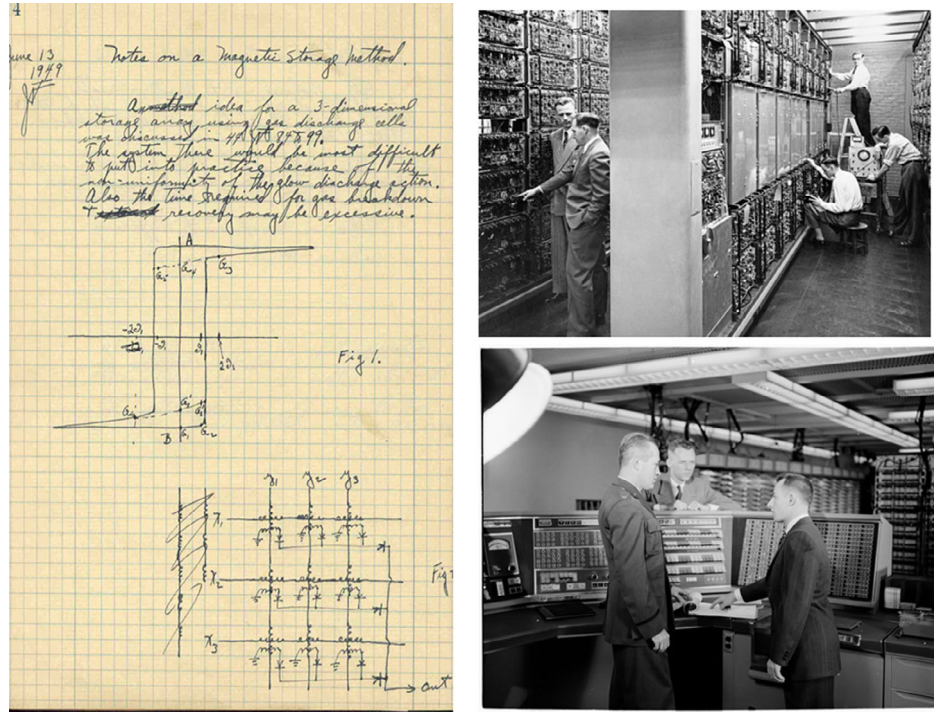 4
June 13
1949
JWF
Notes on a Magnetic Storage Method.
A method idea for a 3-dimensional
storage array using gas discharge cells
was discussed in
The system there would be most difficult
to put into practice because of the
non-uniformity of the glow discharge action.
Also the time required for gas breakdown
+ recovery may be excessive.
A
a₃
Fig 1.
2∂₁
B a₁ a₂
y₁ y₂ y₃
x₁
x₂
x₃
→ out